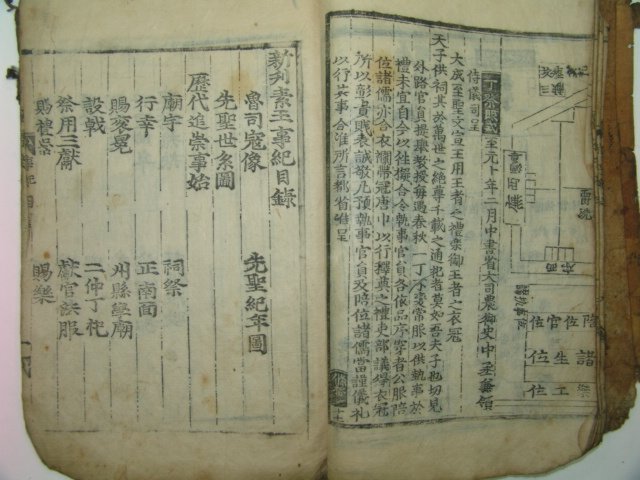 至元十年二月中書省大司農御史中丞兼領
侍儀司呈
大成至聖文宣王用王者之禮樂御王者之衣冠
天子供祠其於萬世之絶尊千載之通祀者莫如吾夫子也切見
外路官員提舉教授每遇春秋二丁不變常服以供執事於
禮未宜自今以往擬合令執事官員各依品序穿着公服陪
位諸儒亦合衣襴帶冠唐巾以行釋奠之禮吏部議得衣冠
所以彰貴賤表誠敬凡預執事官員及陪位諸儒當謹儀禮
以行其事合准所言都省准呈
陪位官位
諸生位
樂工位
新刊素王事紀目錄
魯司寇像
先聖紀年圖
先聖世系圖
歷代追崇事始
廟宇
祠祭
行幸
正南面
賜袞冕
州縣學廟
設戟
二仲丁祀
祭用三獻
獻官法服
賜禮器
賜樂